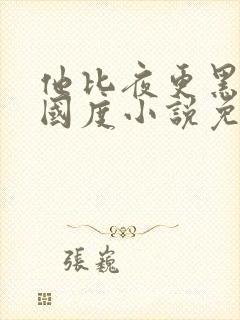 他比夜更黑
國度小說免
張巍